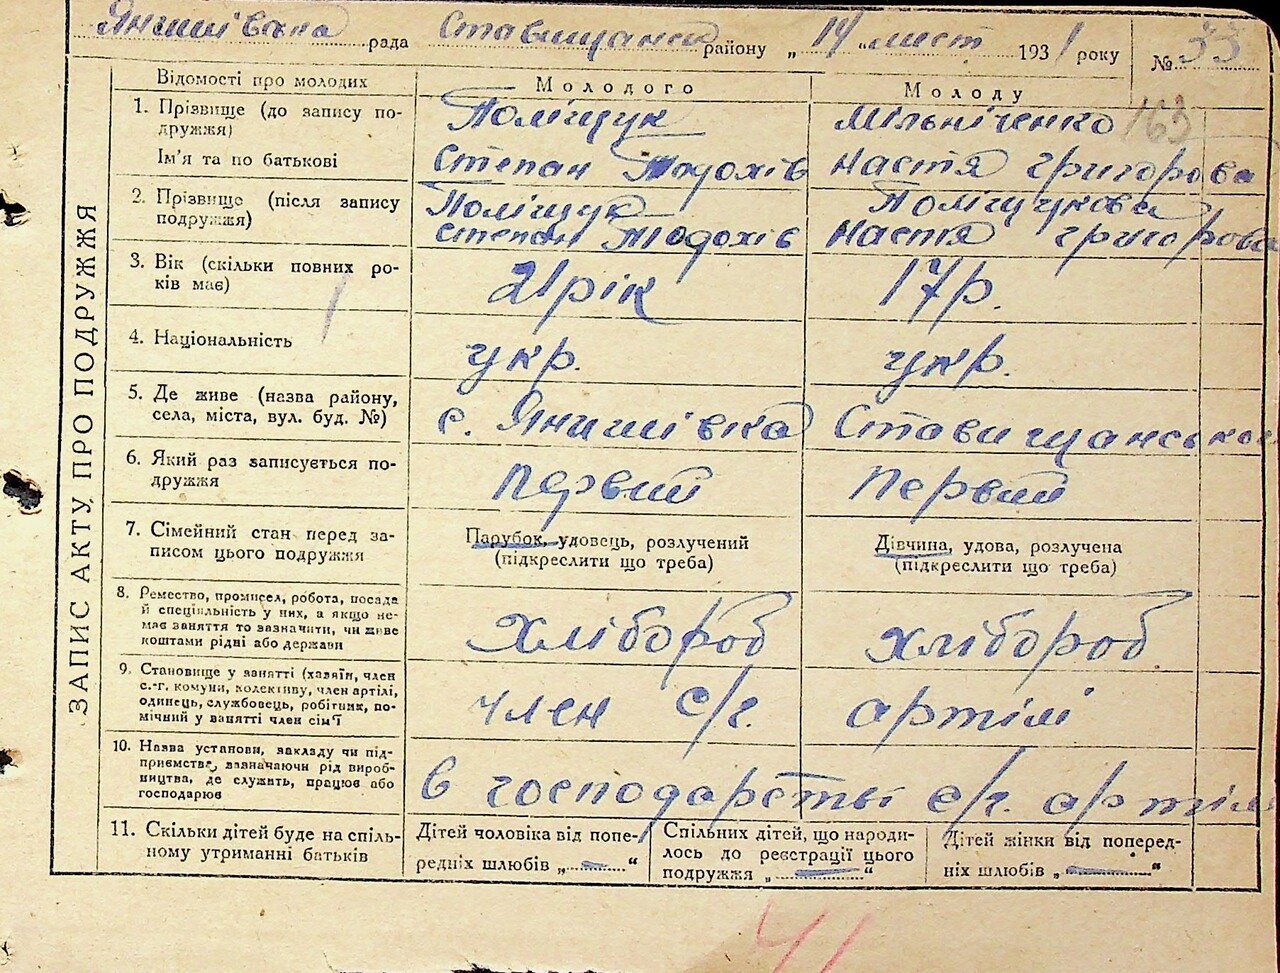 Янишівська рада Ставищанськ району „ 14 " лист 1931 року № 33
Відомості про молодих
Молодого
Молоду
163
ЗАПИС АКТУ ПРО ПОДРУЖЖЯ
1. Прізвище (до запису по-
дружжя)
Поліщук
Мільніченко
Ім'я та по батькові
Степан Тодохів
Настя Григорова
2. Прізвище (після запису
подружжя)
Поліщук
Поліщукова
Степан Тодохів
Настя Григорова
3. Вік (скільки повних ро-
ків має)
21 рік
17 р.
4. Національність
укр.
укр.
5. Де живе (назва району,
села, міста, вул. буд. №)
с. Янишівка Ставищанського
6. Який раз записується по-
дружжя
Первий
Первий
7. Сімейний стан перед за-
писом цього подружжя
Парубок, удовець, розлучений
(підкреслити що треба)
Дівчина, удова, розлучена
(підкреслити що треба)
8. Ремество, промисел, робота, посада
й спеціяльність у них, а якщо не-
має заняття то зазначити, чи живе
коштами рідні або держави
Хлібороб
Хлібороб
9. Становище у занятті (хазяїн, член
с.-г. комуни, колективу, член артілі,
одинець, службовець, робітник, по-
мічний у занятті член сім'ї
член с/г. артілі
10. Назва установи, закладу чи під-
приємства, зазначаючи рід вироб-
ництва, де служить, працює або
господарює
в господарстві с/г. артілі
11. Скільки дітей буде на спіль-
ному утриманні батьків
Дітей чоловіка від попе-
редніх шлюбів „ — "
Спільних дітей, що народи-
лось до реєстрації цього
подружжя „ — "
Дітей жінки від поперед-
ніх шлюбів „ — "
41